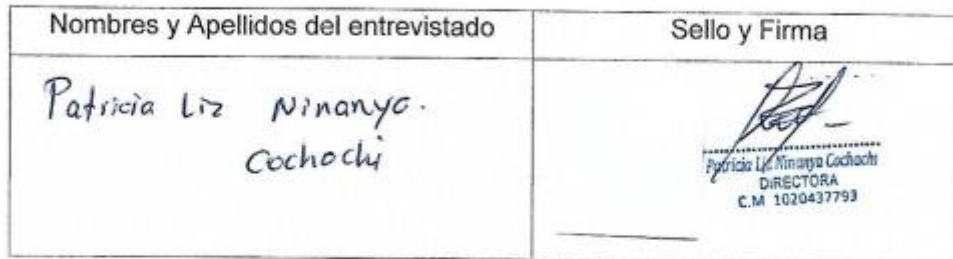 Nombres y Apellidos del entrevistado
Sello y Firma
Patricia Liz Ninanya.
Cochachi
Patricia Liz Ninanya Cochachi
DIRECTORA
C.M 1020437793